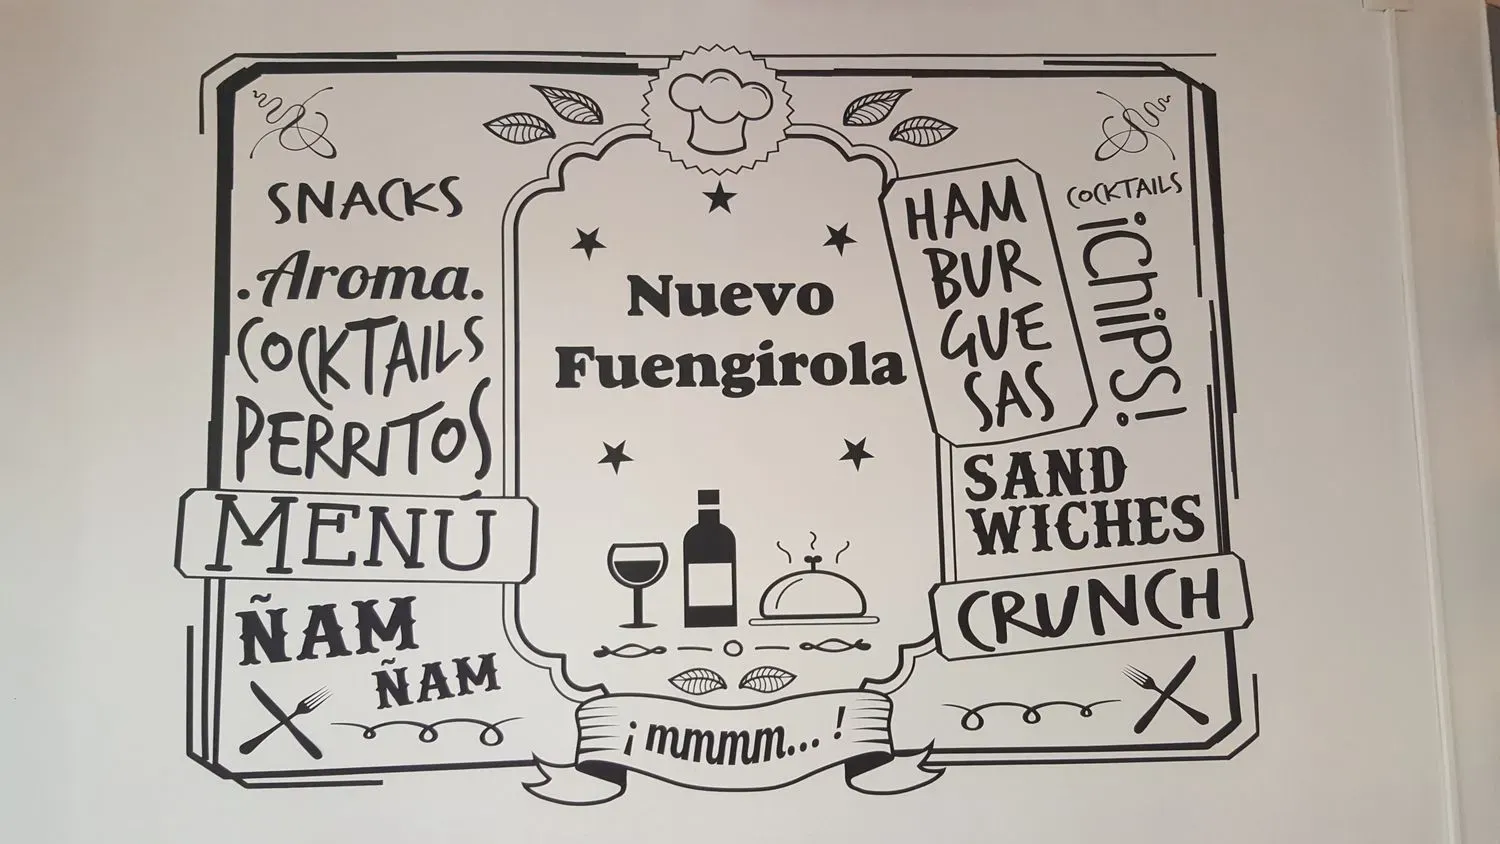 SNACKS
.Aroma.
COCKTAILS
PERRITOS
MENÚ
ÑAM
ÑAM
Nuevo
Fuengirola
¡mmmm...!
HAM
BUR
GUE
SAS
COCKTAILS
¡ChiPS!
SAND
WICHES
CRUNCH